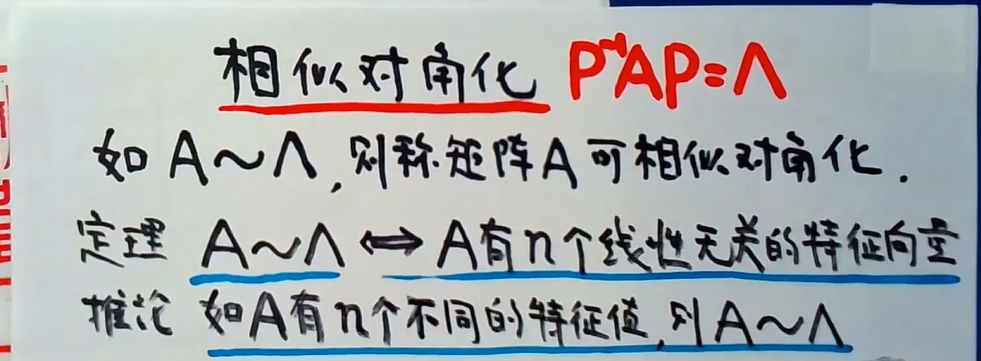 相似对角化 P⁻¹AP=Λ
如 A~Λ,则称矩阵A可相似对角化.
定理 A~Λ ⟺ A有n个线性无关的特征向量
推论 如A有n个不同的特征值,则A~Λ